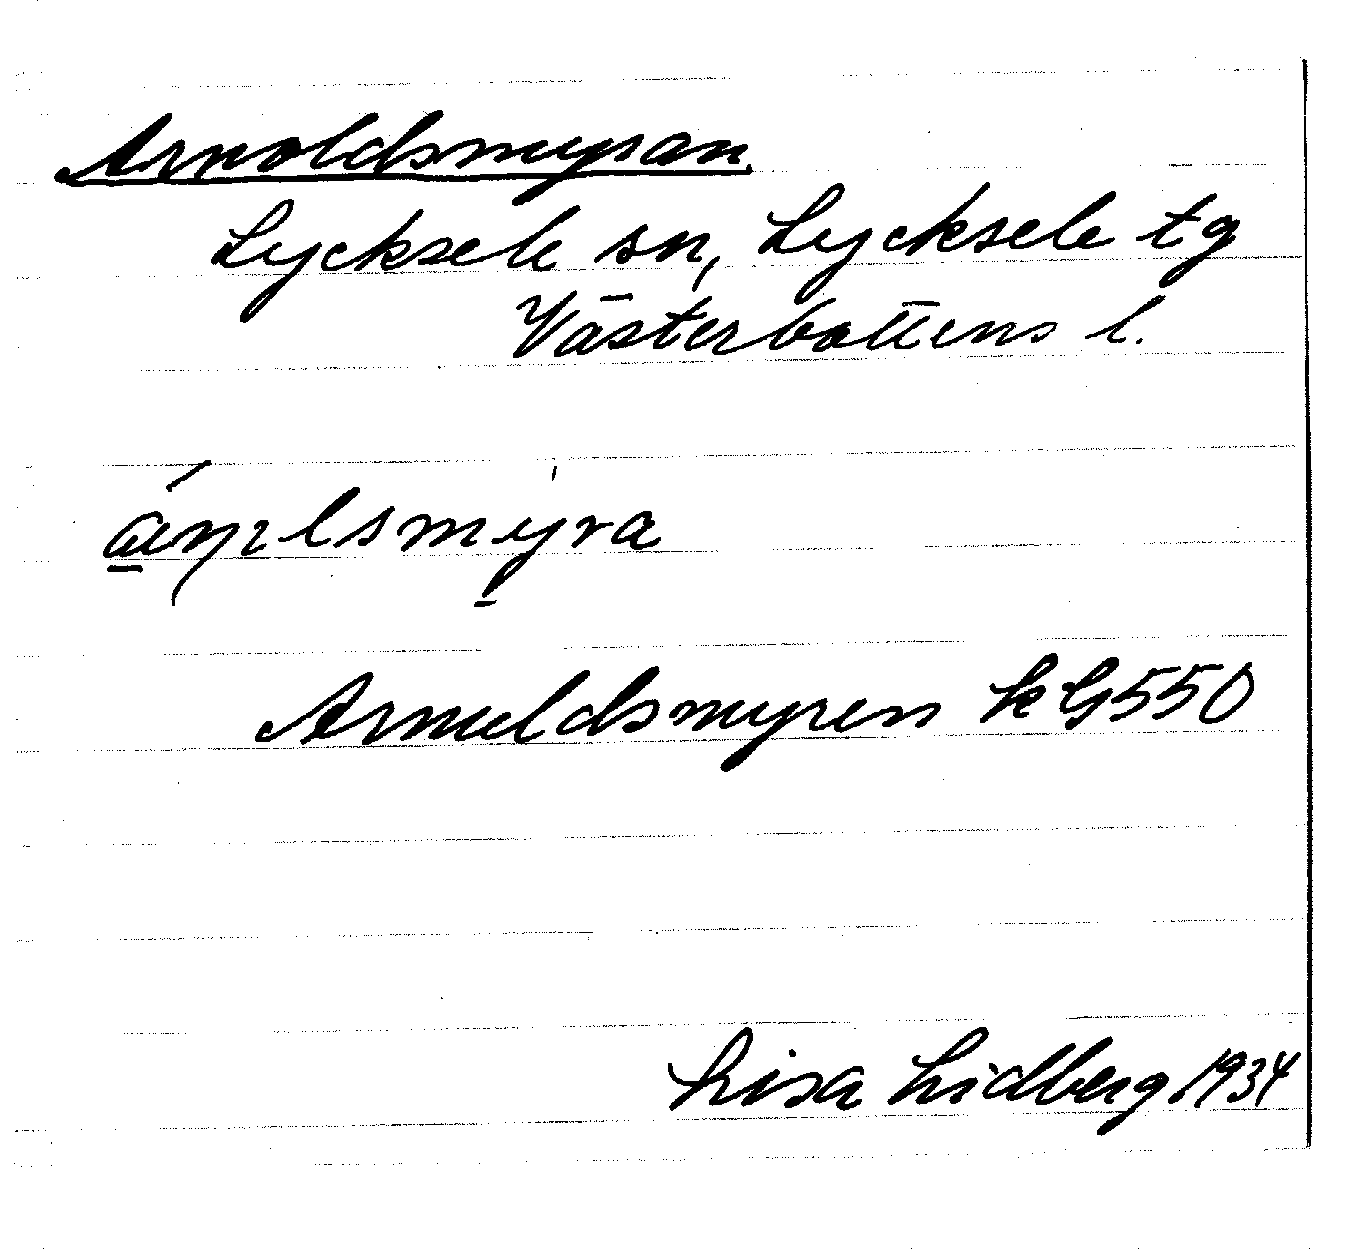 Arnoldsmyran.
Lycksele sn, Lycksele tg
Västerbottens l.
Arnuldsmyren kG550
Lisa Lidberg 1934